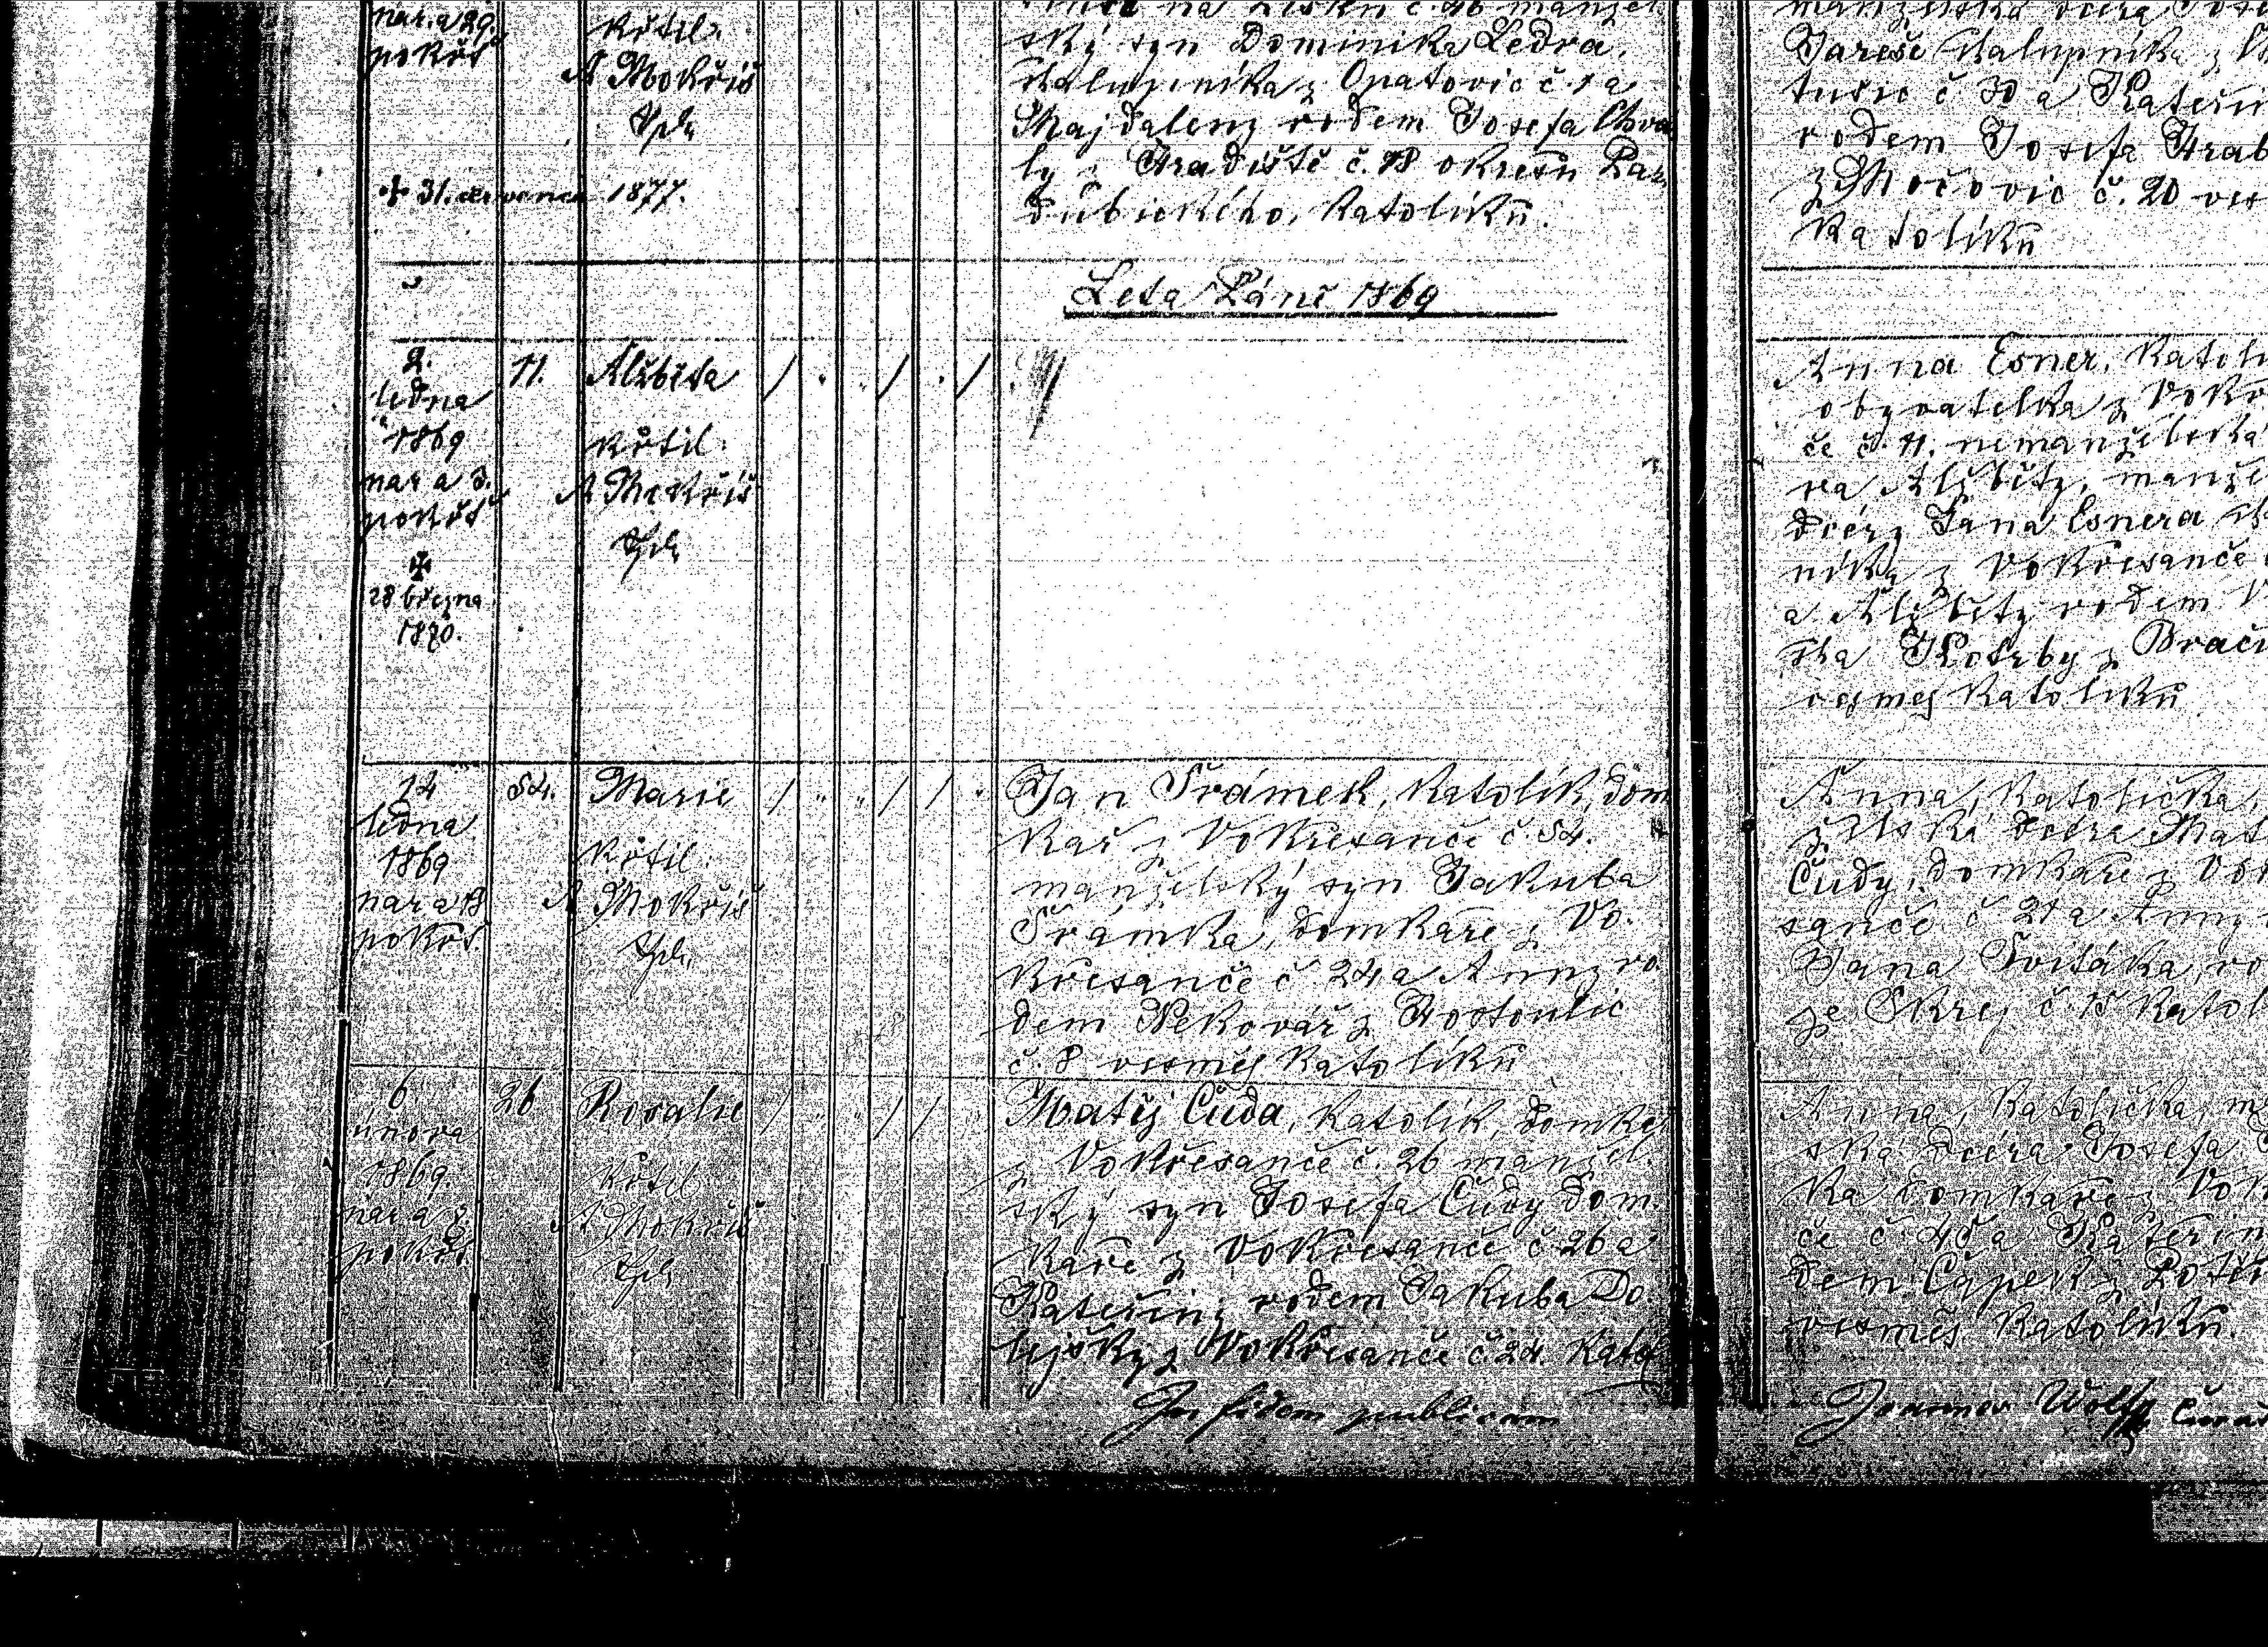 nar. a 29.
pokřt
křtil:
A Mokříš
na č. 46 manžel
ský syn Dominika Ledra,
chalupníka z Opatovic č. 1 a
Majdaleny rodem Josefa Chva
ly z Hradiště č. 18 okresu Par
dubického, katolíků.
manželská dcera
Jareše chalupníka z
tušic č 30 a Kateřin
rodem Josefa Hrab
z Močovic č. 20 ves
katolíků
+ 31. července 1877.
Leta Páně 1869
2.
ledna
1869
nar a 3.
pokřt
28 března
1870.
11.
Alžběta
křtil:
A Mokříš
Anna Esner, katoli
obyvatelka z Vokř
če č. 11. nemanželská
ra Alžběty, manžel
dcery Jana Esnera ch
níka z Vokřesanče
a Alžběty rodem V
cha Kotrby z Brači
vesměs katolíků
14
ledna
1869
nar a 13
pokřt.
54.
Marie
křtil:
A Mokříš
Jan Šrámek, katolík, dom
kař z Vokřesanče č 54.
manželský syn Jakuba
Šrámka, domkáře z Vo.
křesanče č 24 a Anny ro.
dem Nekovář z Hostoulic
č. 8 vesměs katolíků
Anna, katolička,
želská dcéra Mat
Čudy, domkáře z Vok
sanče č 21 a Anny
Jana Sviták̇a, ro
ze Skrej č. 15 katol
6.
února
1869.
nar a 8.
pokřt.
26
Rosalie
křtil
A Mokříš
Matěj Čuda, katolík, domká
z Vokřesanče č. 26 manžel.
ský syn Josefa Čudy dom.
káře z Vokřesanče č 26 a
Kateřiny rodem Jakuba Do.
lejšky z Vokřesanče č 24. katol
Anna, katolička, m
ská dcéra Josefa
ka domkáře z Vok
če č 45 a Kateřin
dem Čapek z Potěh
vesměs katolíků.
In fidem publicam
Joannes Wolf